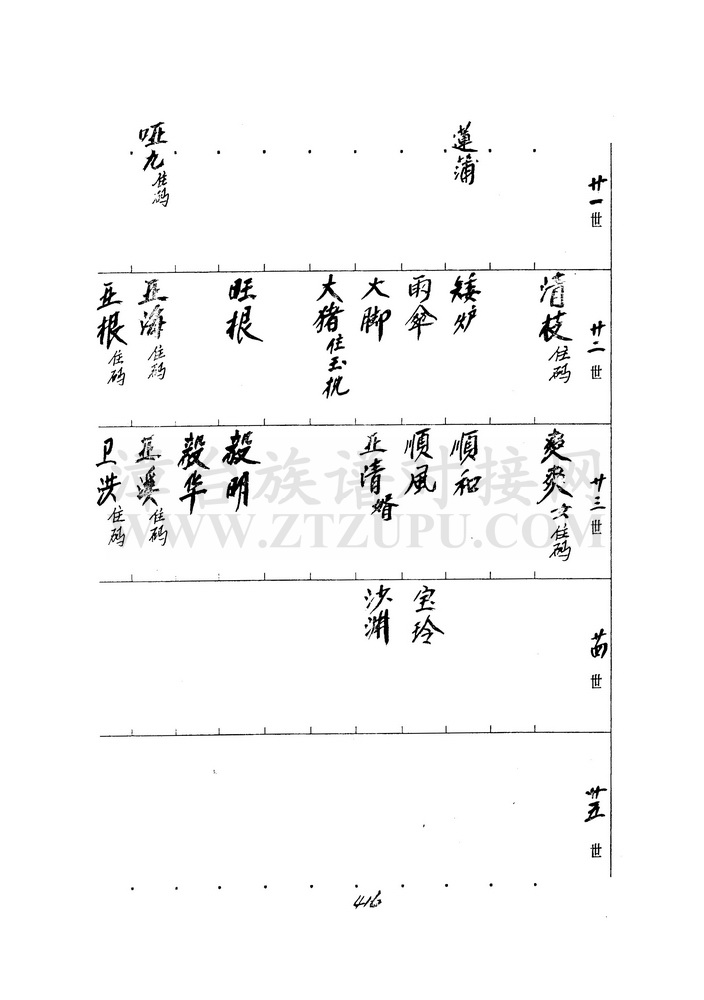 廿一世
蓮蒲
哑九住码
廿二世
清枝住码
矮炉
雨伞
大脚
大猪住玉枕
旺根
亚海住码
亚根住码
廿三世
爽爽一次住码
順和
順風
亚清婿
毅明
毅华
亚溪住码
卫洪住码
廿四世
宝玲
沙渊
廿五世
416
漳台族谱对接网
WWW.ZTZUPU.COM